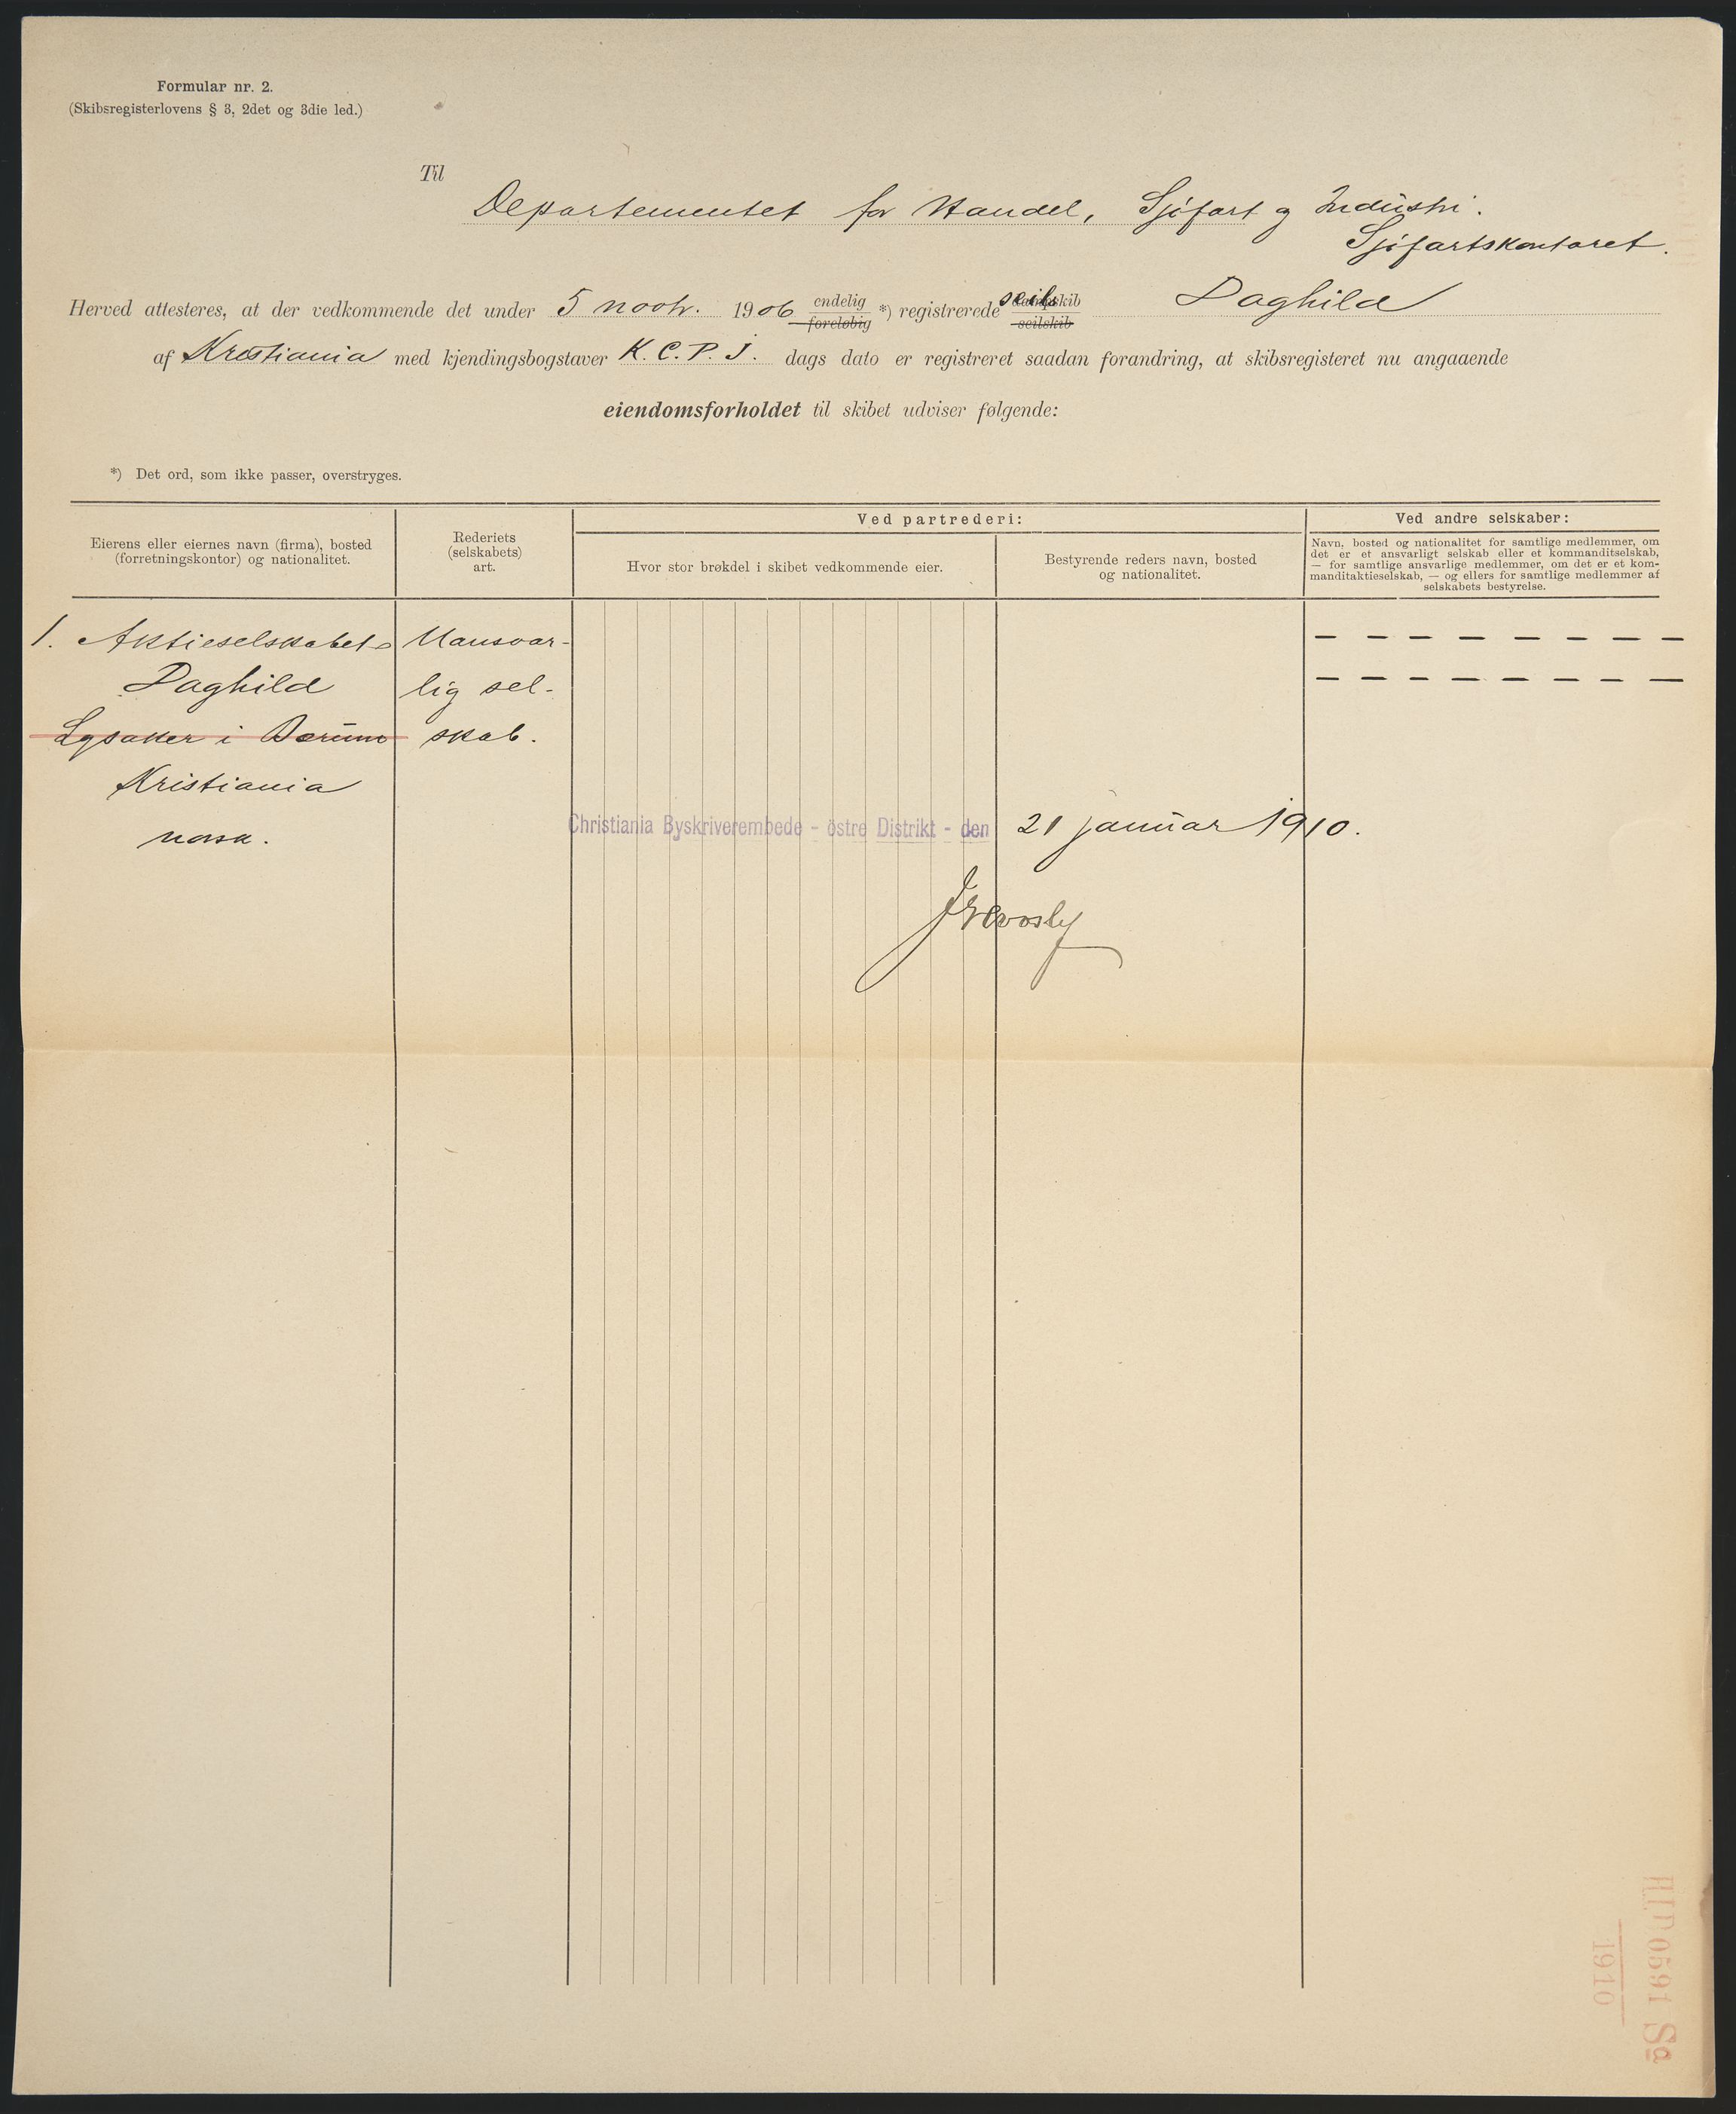 Formular nr. 2.
(Skibsregisterlovens § 3, 2det og 3die led.)
Til
Departementet for Handel, Sjöfart og Industri.
Sjöfartskontoret.
Herved attesteres, at der vedkommende det under 5 novbr. 1906 endelig foreløbig *) registrerede seilskib seilskib Daghild
af Kristiania med kjendingsbogstaver K. C. P. J. dags dato er registreret saadan forandring, at skibsregisteret nu angaaende
eiendomsforholdet til skibet udviser følgende:
*) Det ord, som ikke passer, overstryges.
Eierens eller eiernes navn (firma), bosted
(forretningskontor) og nationalitet.
Rederiets
(selskabets)
art.
Ved partrederi:
Hvor stor brøkdel i skibet vedkommende eier.
Bestyrende reders navn, bosted
og nationalitet.
Ved andre selskaber:
Navn, bosted og nationalitet for samtlige medlemmer, om
det er et ansvarligt selskab eller et kommanditselskab,
— for samtlige ansvarlige medlemmer, om det er et kom-
manditaktieselskab, — og ellers for samtlige medlemmer af
selskabets bestyrelse.
1. Aktieselskabet
Daghild
Lysaker i Bærum
Kristiania
norsk.
Uansvar-
lig sel-
skab.
Christiania Byskriverembede - östre Distrikt - den 21 januar 1910.
H.I.D 0591 Sa
1910